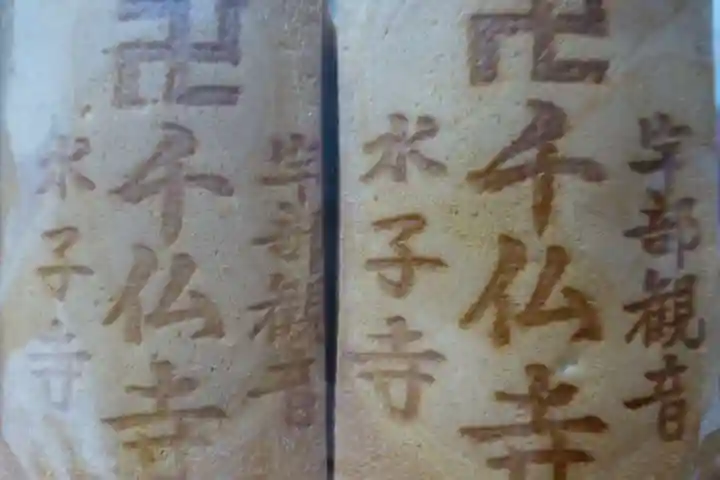 宇部観音
卍千仏寺
水子寺
宇部観音
卍千仏寺
水子寺